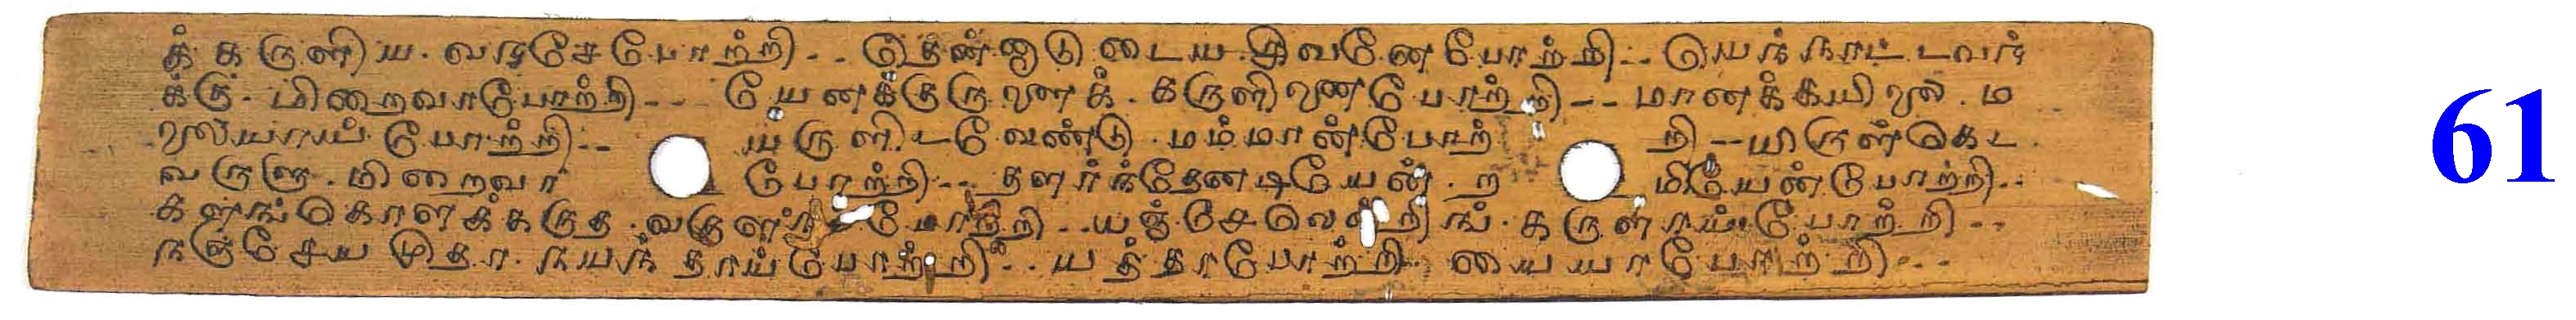 க்கருளிய வரசே போற்றி -- தென்னாடுடைய சிவனே போற்றி -- யென்னாட்டவர்
க்கு மிறைவா போற்றி -- யேனக்குருவுக் கருளினை போற்றி -- மானக்கயிலை ம
லையாய் போற்றி -- யருளிட வேண்டு மம்மான் போற்றி -- யிருள்கெட
வருளு மிறைவா போற்றி -- தளர்ந்தேனடியேன் றமியேன் போற்றி --
களங்கொளக் கருத வருளாய் போற்றி -- யஞ்சேலென்றிங் கருளாய் போற்றி --
நஞ்சே யமுதா நயந்தாய் போற்றி -- யத்தா போற்றி யையா போற்றி --
61